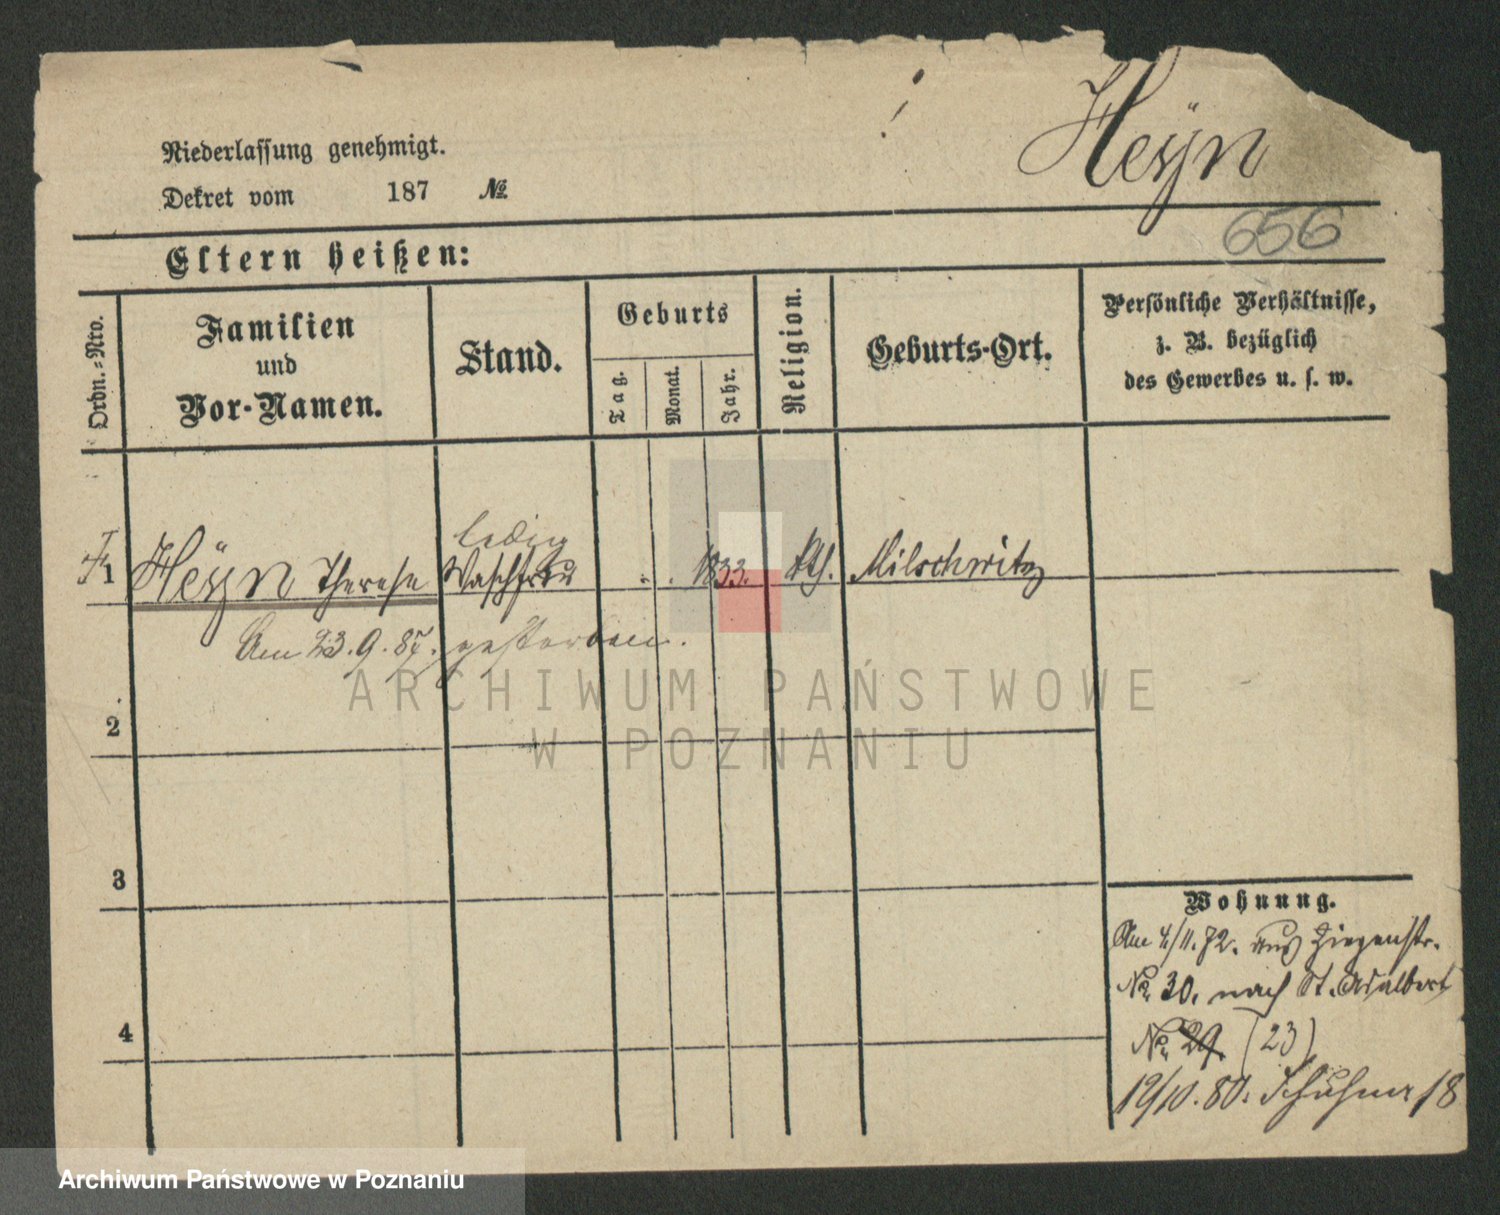 Heÿn
Niederlassung genehmigt.
Dekret vom 187 №
656
Eltern heißen:
Ordn.-Nro.
Familien
und
Vor-Namen.
Stand.
Geburts
Tag.
Monat.
Jahr.
Religion.
Geburts-Ort.
Persönliche Verhältnisse,
z. B. bezüglich
des Gewerbes u. s. w.
ledig
1 Heÿn Therese Waschfrau . . 1833. kth. Milschwitz
Am 23.9.87. gestorben.
ARCHIWUM PAŃSTWOWE
W POZNANIU
2
3
4
Wohnung.
Am 4/11.72. aus Ziegenstr.
No. 30. nach St. Adalbert
No. 29. (23)
19/10.80. 18
Archiwum Państwowe w Poznaniu